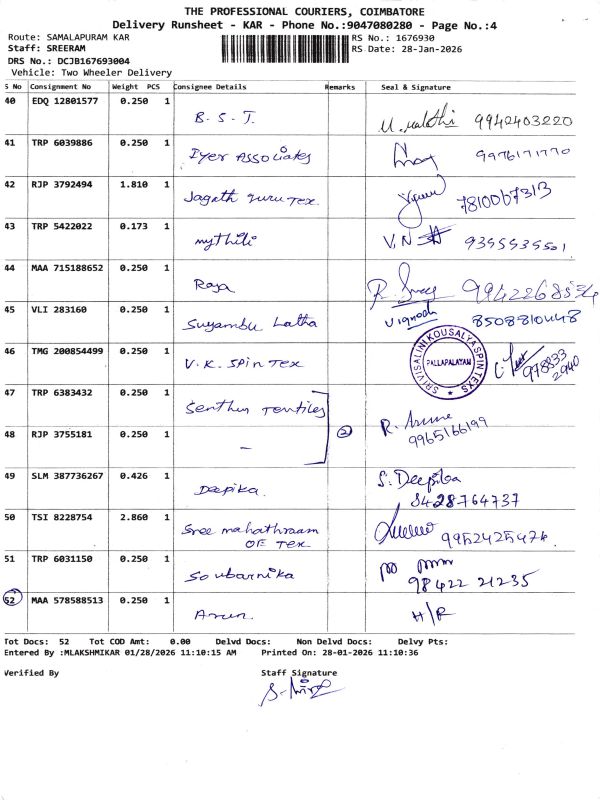 THE PROFESSIONAL COURIERS, COIMBATORE
Delivery Runsheet - KAR - Phone No.:9047080280 - Page No.:4
Route: SAMALAPURAM KAR
RS No.: 1676930
Staff: SREERAM
RS Date: 28-Jan-2026
DRS No.: DCJB167693004
Vehicle: Two Wheeler Delivery
S No Consignment No Weight PCS Consignee Details Remarks Seal & Signature
40 EDQ 12801577 0.250 1 B. S. T. 9942403220
41 TRP 6039886 0.250 1 Iyer Associates 9976171770
42 RJP 3792494 1.810 1 Jagath guru Tex. 7810067313
43 TRP 5422022 0.173 1 mythili V.N
44 MAA 715188652 0.250 1 Raja
45 VLI 283160 0.250 1 Suyambu Latha Vignesh 8508810448
46 TMG 200854499 0.250 1 V.K. SPIN TEX
SRI VISALINI KOUSALYA SPIN TEXS
PALLAPALAYAM
47 TRP 6383432 0.250 1 Senthur Textiles
48 RJP 3755181 0.250 1 - 2 9965166199
49 SLM 387736267 0.426 1 Deepika. S. Deepika
8428764737
50 TSI 8228754 2.860 1 Sree mahathraam
OE Tex 9952425476.
51 TRP 6031150 0.250 1 Soubarnika
98422 21235
52 MAA 578588513 0.250 1 Arun. H/R
Tot Docs: 52 Tot COD Amt: 0.00 Delvd Docs: Non Delvd Docs: Delvy Pts:
Entered By :MLAKSHMIKAR 01/28/2026 11:10:15 AM Printed On: 28-01-2026 11:10:36
Verified By Staff Signature